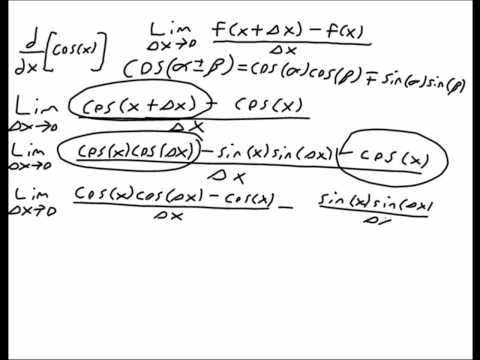 d/dx [cos(x)]   Lim Δx→0 (f(x+Δx) − f(x))/Δx
COS(α±β) = cos(α)cos(β) ∓ sin(α)sin(β)
Lim Δx→0 (cos(x+Δx) − cos(x))/Δx
Lim Δx→0 (cos(x)cos(Δx) − sin(x)sin(Δx) − cos(x))/Δx
Lim Δx→0 (cos(x)cos(Δx) − cos(x))/Δx − (sin(x)sin(Δx))/Δx